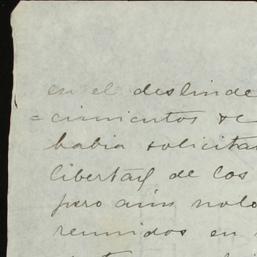 en el deslinde
= cimientos se
habia solicita
libertad de los
pero aún no lo
reunidos en